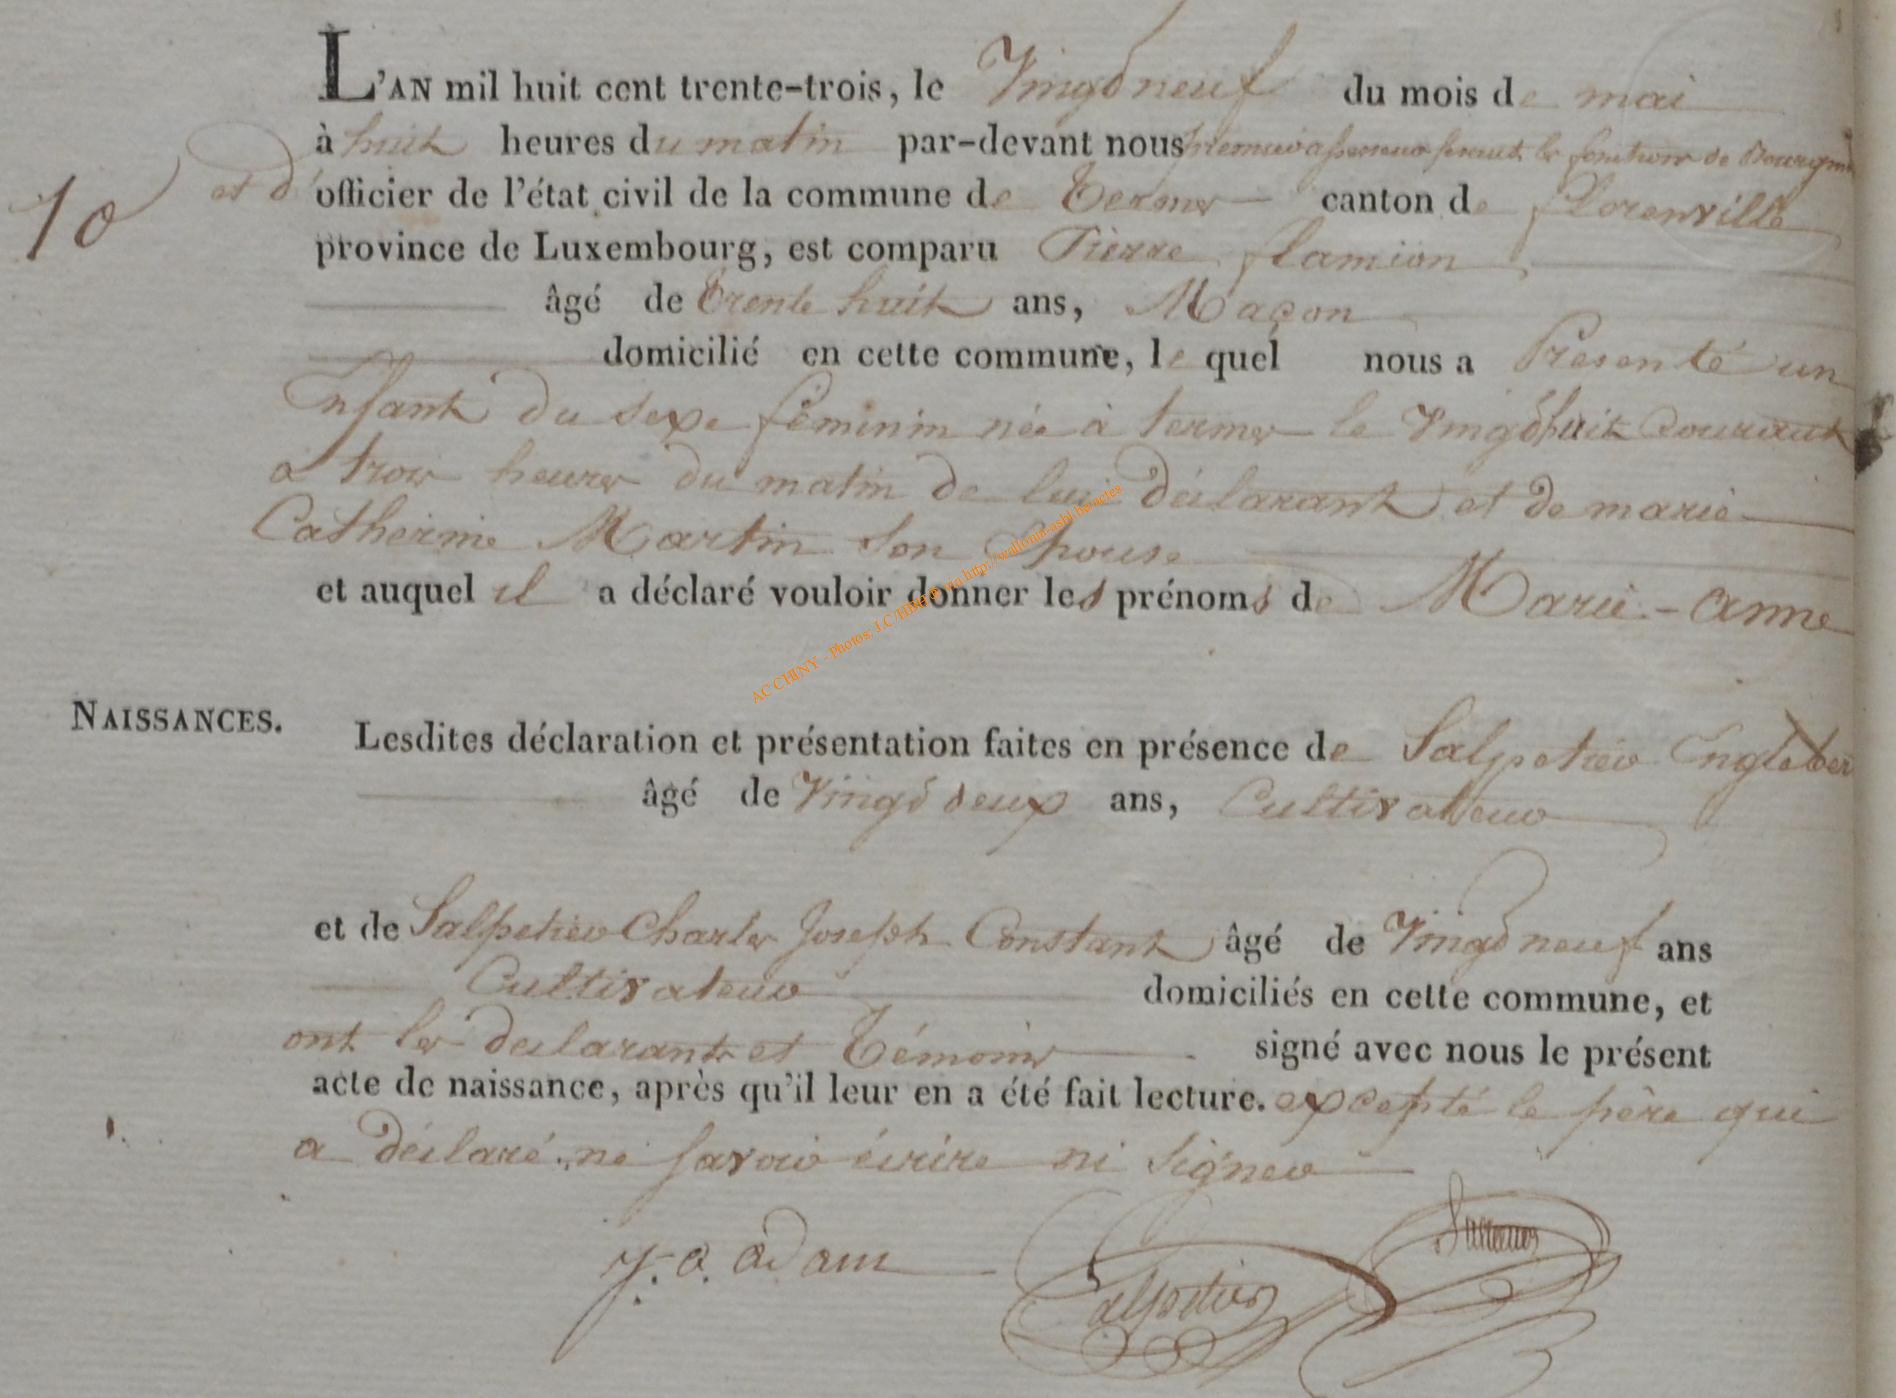 L'AN mil huit cent trente-trois, le Vingt neuf du mois de mai
à huit heures du matin par-devant nous premier assesseur faisant les fonctions de Bourgm
10 et d'officier de l'état civil de la commune de Termes canton de florenville
province de Luxembourg, est comparu Pierre flamion
âgé de trente huit ans, Maçon
domicilié en cette commune, le quel nous a Présenté un
Enfant du sexe féminin née à termes le Vingt huit Courant
a trois heures du matin de lui déclarant et de marie
Catherine Martin son Epouse
et auquel il a déclaré vouloir donner les prénoms de Marie-anne
NAISSANCES.
Lesdites déclaration et présentation faites en présence de Salpetier Engleber
âgé de Vingt deux ans, Cultivateur
et de Salpetier Charles Joseph Constant âgé de Vingt neuf ans
Cultivateur domiciliés en cette commune, et
ont les declarants et Témoins signé avec nous le présent
acte de naissance, après qu'il leur en a été fait lecture. excepté le père qui
a déclaré ne savoir écrire ni signer
J. a. adam
Salpetier
AC CHINY - Photos: J.C via http://walloniaasbl.be/actes